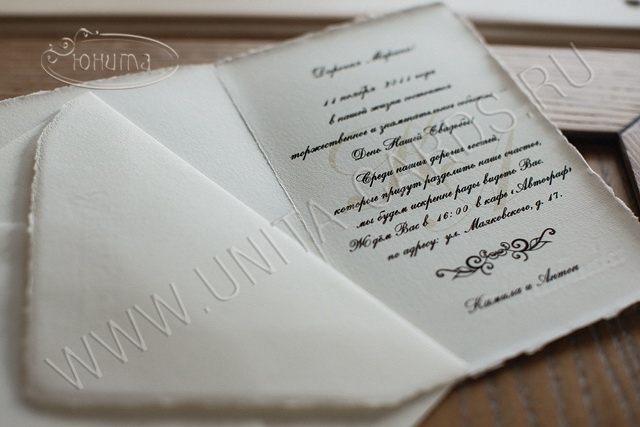 Юнита
Дорогая Марина!
11 ноября 2011 года
в нашей жизни состоится
торжественное и знаменательное событие
День Нашей Свадьбы!
Среди наших дорогих гостей,
которые придут разделить наше счастье,
мы будем искренне рады видеть Вас.
Ждём Вас в 16:00 в кафе «Автограф»
по адресу: ул. Маяковского, д. 17.
Камила и Антон
WWW.UNITA-CARDS.RU